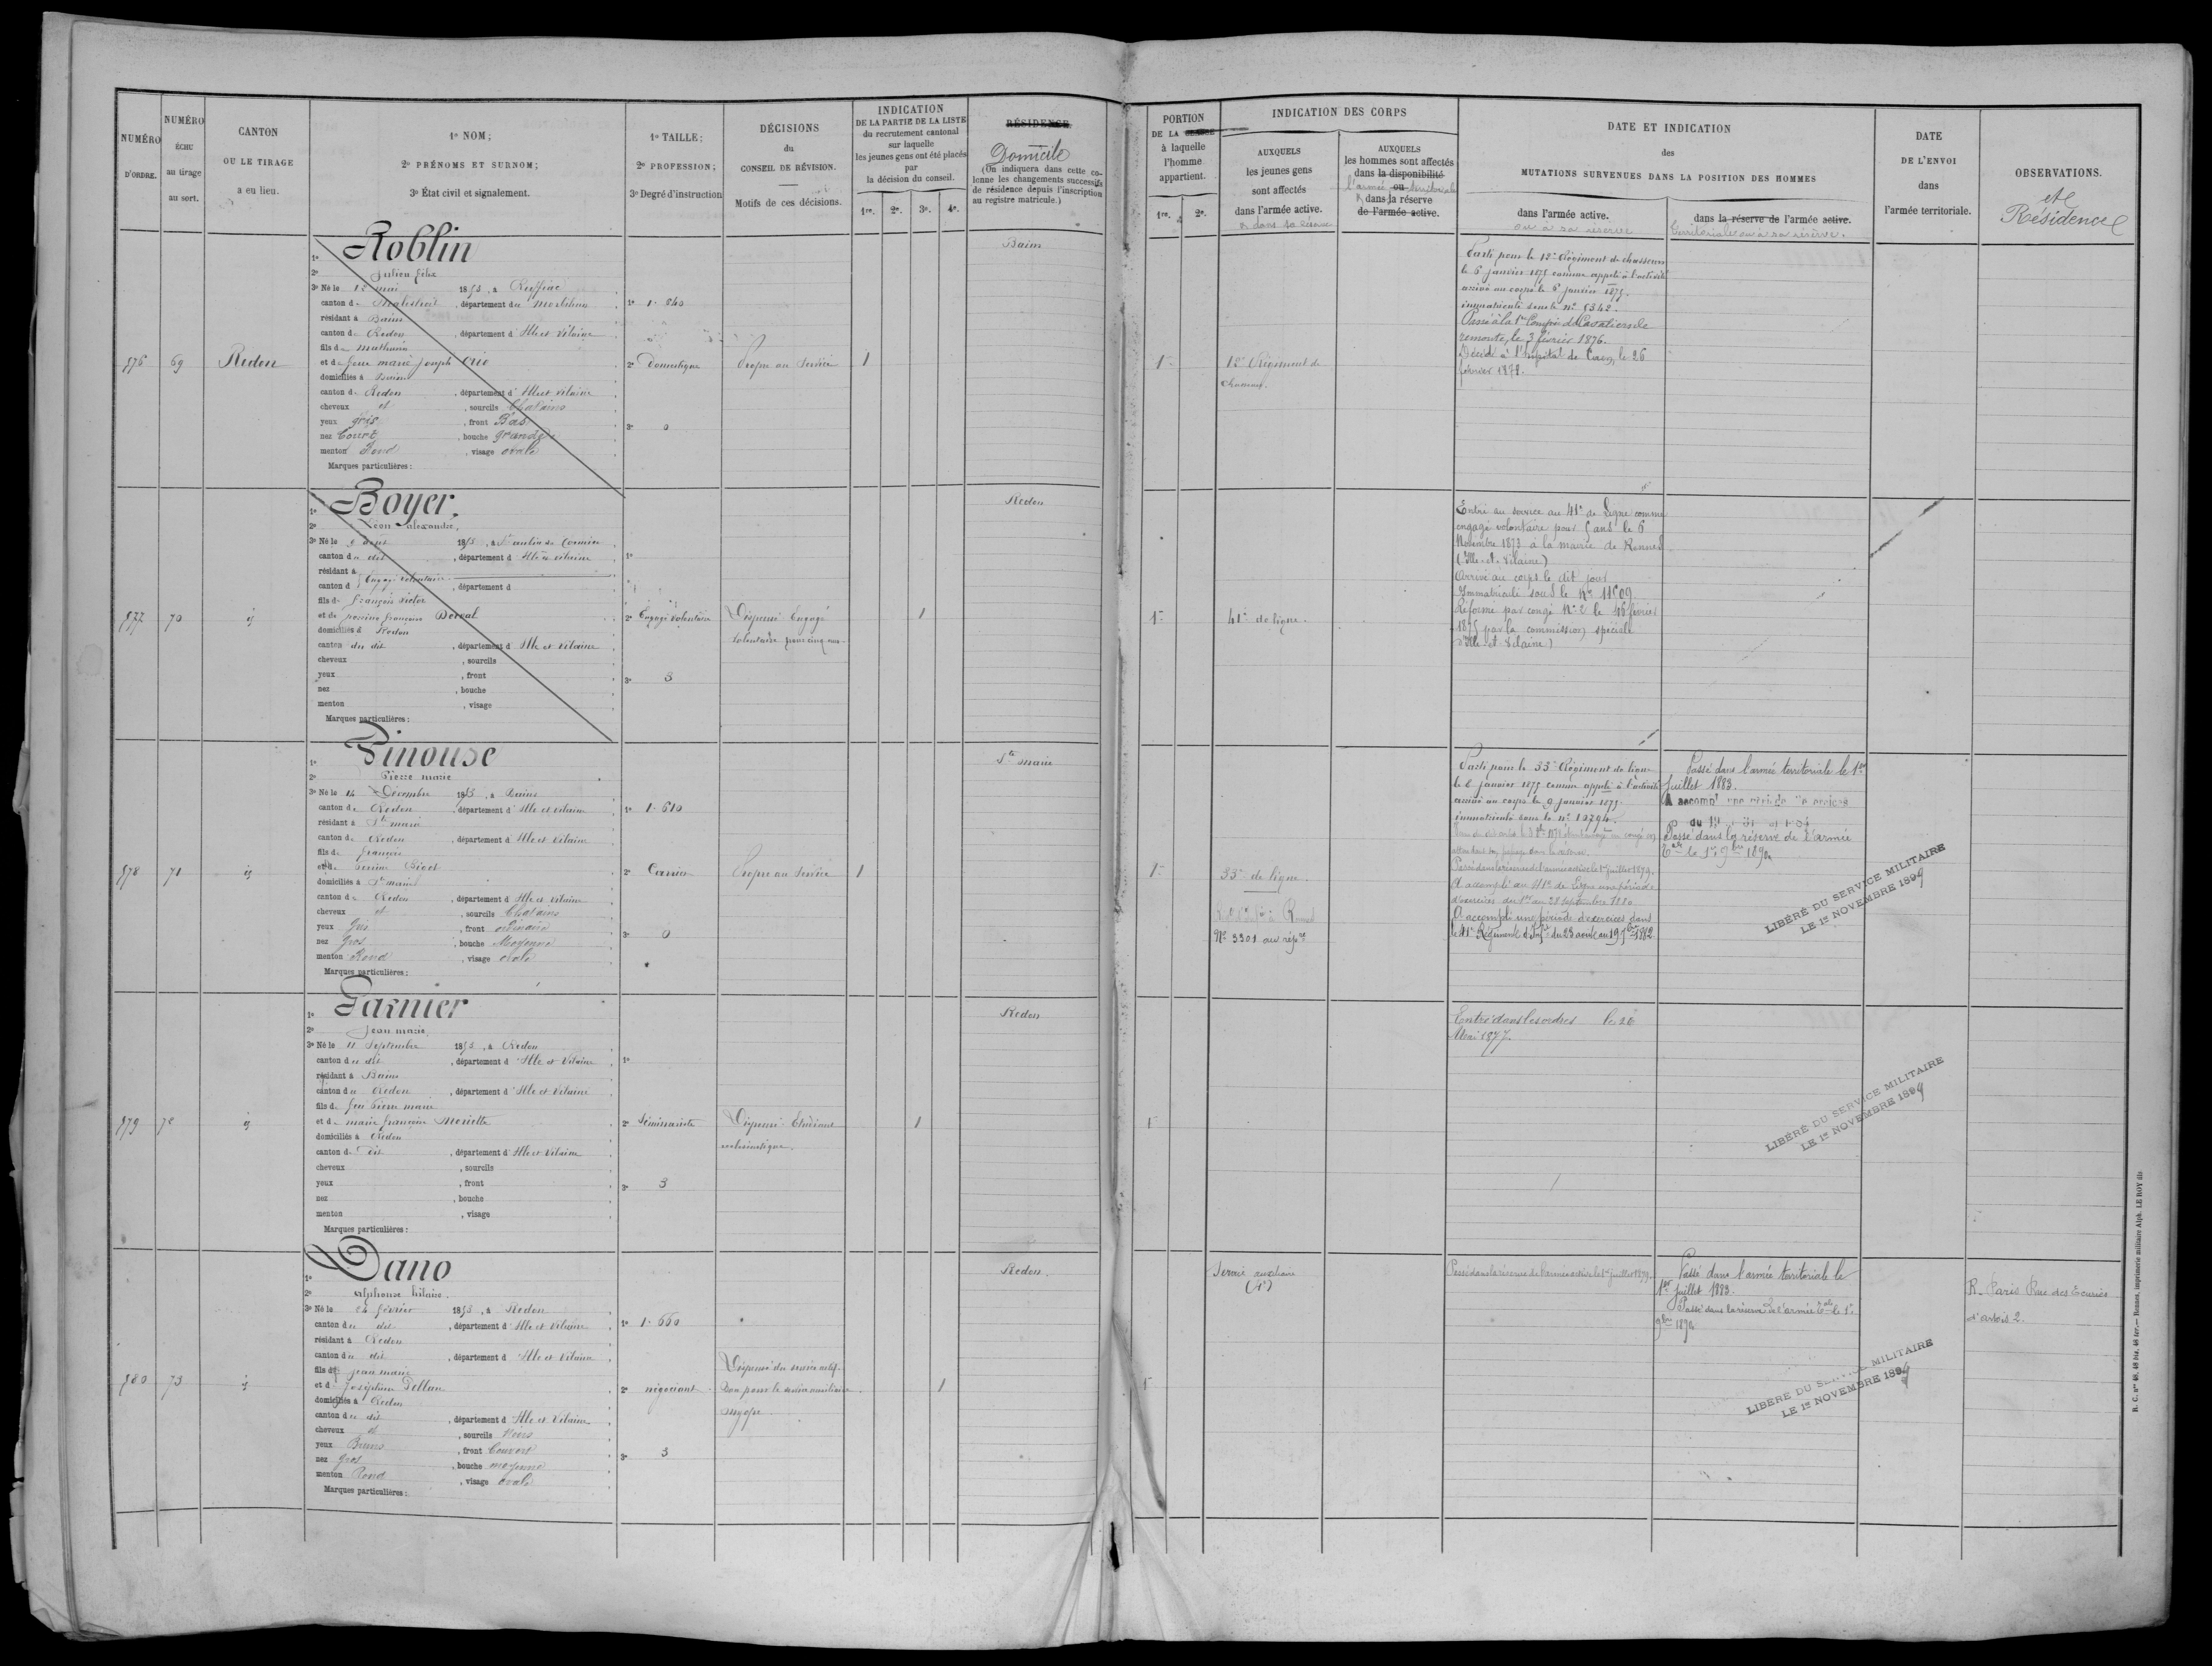 NUMÉRO D'ORDRE.
NUMÉRO ÉCHU au tirage au sort.
CANTON OU LE TIRAGE a eu lieu.
1º NOM;
2º PRÉNOMS ET SURNOM;
3º État civil et signalement.
1º TAILLE;
2º PROFESSION;
3º Degré d'instruction
DÉCISIONS du CONSEIL DE RÉVISION.
Motifs de ces décisions.
INDICATION
DE LA PARTIE DE LA LISTE
du recrutement cantonal
sur laquelle
les jeunes gens ont été placés
par
la décision du conseil.
1re. 2e. 3e. 4e.
RÉSIDENCE
Domicile
(On indiquera dans cette co-
lonne les changements successifs
de résidence depuis l'inscription
au registre matricule.)
PORTION
DE LA
à laquelle
l'homme
appartient.
1re. 2e.
INDICATION DES CORPS
AUXQUELS
les jeunes gens
sont affectés
dans l'armée active.
AUXQUELS
les hommes sont affectés
dans la disponibilité
ou
dans la réserve
de l'armée active.
l'armée territoriale
DATE ET INDICATION
des
MUTATIONS SURVENUES DANS LA POSITION DES HOMMES
dans l'armée active.
ou à sa réserve
dans la réserve de l'armée active.
territoriale ou à sa réserve.
DATE
DE L'ENVOI
dans
l'armée territoriale.
OBSERVATIONS.
et
Résidence
576
69
Redon
1º Roblin
2º Julien félix
3º Né le 12 mai 1853, à Ruffiac
canton de Malestroit, département du Morbihan
résidant à Bains
canton de Redon, département d'Ille et Vilaine
fils de mathurin
et de feue marie joseph
domiciliés à Bains
canton de Redon, département d'Ille et Vilaine
cheveux et, sourcils Chatains
yeux gris, front Bas
nez Court, bouche grande
menton Rond, visage ovale
Marques particulières:
1º 1.640
2º Domestique
3º 0
Propre au Service
1
Bains
1re
12e Régiment de
chasseurs.
Parti pour le 12e Régiment de chasseurs
le 6 janvier 1875 comme appelé à l'activité
arrivé au corps le 6 janvier 1875.
immatriculé sous le nº 5342.
Passé à la 1re Compie de Cavaliers de
remonte, le 3 février 1876.
Décédé à l'hôpital de Caen, le 26
février 1878.
577
70
id
1º Boyer.
2º Léon alexandre,
3º Né le août 1853, à
canton du dit, département d'Ille et Vilaine
résidant à
Engagé volontaire
canton d, département d
fils de François Victor
et de perrine françoise Derval
domiciliés à Redon
canton du dit, département d'Ille et Vilaine
cheveux, sourcils
yeux, front
nez, bouche
menton, visage
Marques particulières:
1º
2º Engagé Volontaire
3º 3
Dispensé Engagé
Volontaire pour cinq ans
1
Redon
1re
41e de ligne.
Entré au service au 41e de Ligne comme
engagé volontaire pour 5 ans le 6
Novembre 1873 à la mairie de Rennes
(Ille-et-Vilaine)
Arrivé au corps le dit jour
Immatriculé sous le Nº 11509
Réformé par congé Nº 2 le 16 février
1875 par la commission spéciale
d'Ille-et-Vilaine)
578
71
id
1º Pinouse
2º Pierre marie
3º Né le 14 Décembre 1853, à Bains
canton de Redon, département d'Ille et Vilaine
résidant à Ste marie
canton de Redon, département d'Ille et Vilaine
fils de François
et de perrine
domiciliés à Ste marie
canton de Redon, département d'Ille et Vilaine
cheveux et, sourcils Chatains
yeux Gris, front ordinaire
nez Gros, bouche Moyenne
menton Rond, visage ovale
Marques particulières:
1º 1.610
2º Carrier
3º 0
Propre au Service
1
Ste marie
1re
33e de ligne.
Nº 3301 au répre
Parti pour le 33e Régiment de ligne
le 6 janvier 1875 comme appelé à l'activité
arrivé au corps le 9 janvier 1875.
immatriculé sous le nº 10794.
Passé dans la réserve de l'armée active le 1er juillet 1879.
A accompli au 41e de Ligne une période
d'exercices du 1er au 28 septembre 1880.
A accompli une période d'exercices dans
le 41e Régiment d'Infie du 23 août au 19 7bre 1882.
Passé dans l'armée territoriale le 1er
Juillet 1883.
A accompl une période
Passé dans la réserve de l'armée
Tale le 1er 9bre 189
LIBÉRÉ DU SERVICE MILITAIRE
LE 1er NOVEMBRE 1899
579
72
id
1º Garnier
2º Jean marie
3º Né le 11 Septembre 1853, à Redon
canton du dit, département d'Ille et Vilaine
résidant à Bains
canton de Redon, département d'Ille et Vilaine
fils de feu Pierre marie
et de marie françoise
domiciliés à Redon
canton du dit, département d'Ille et Vilaine
cheveux, sourcils
yeux, front
nez, bouche
menton, visage
Marques particulières:
1º
2º Séminariste
3º 3
Dispensé Etudiant
ecclésiastique.
1
Redon
1re
Entré dans les ordres le 26
Mai 1877.
LIBÉRÉ DU SERVICE MILITAIRE
LE 1er NOVEMBRE 1899
580
73
id
1º Dano
2º alphonse hilaire.
3º Né le 24 février 1853, à Redon
canton du dit, département d'Ille et Vilaine
résidant à Redon
canton du dit, département d'Ille et Vilaine
fils de jean marie
et de Joséphine
domiciliés à Redon
canton du dit, département d'Ille et Vilaine
cheveux et, sourcils Noirs
yeux Bruns, front Couvert
nez gros, bouche moyenne
menton Rond, visage ovale
Marques particulières:
1º 1.660
2º négociant
3º 3
Dispensé du service actif.
Bon pour le service auxiliaire
myope.
1
Redon.
1re
Service auxiliaire
(4e)
Passé dans la réserve de l'armée active le 1er juillet 1879.
Passé dans l'armée territoriale le
1er Juillet 1883.
Passé dans la réserve de l'armée Tale le 1er
9bre 189
LIBÉRÉ DU SERVICE MILITAIRE
LE 1er NOVEMBRE 1899
R. Paris Rue des Ecuries
d'artois 2.
R. C. nos 48, 48 bis, 48 ter.— Rennes, Imprimerie militaire Alph. LE ROY fils